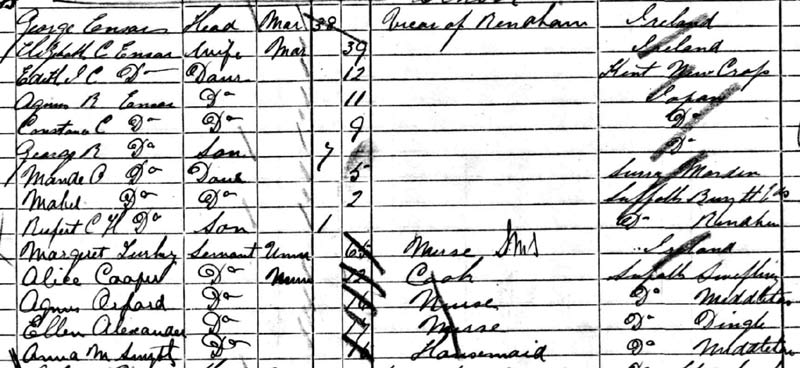 George Ensor Head Mar 38 Vicar of Rendham Ireland
Elizabeth C Ensor Wife Mar 39 Ireland
Edith I C Do Daur 12 Kent New Crop
Agnes R Ensor Do 11 Japan
Constance C Do Do 9 Do
George R Do Son 7 Do
Maude B Do Daur 5 Surrey Morden
Mabel Do Do 2 Suffolk Bury
Rupert C H Do Son 1 Do Rendham
Margaret Servant Unm 65 Nurse Ireland
Alice Cooper Do Cook Suffolk Swefling
Agnes Do Nurse Do Middleton
Ellen Alexander Do Nurse Do Dingle
Anna M Smyth Do Housemaid Do Middleton